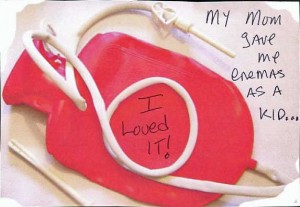 My MOM
gave
me
enemas
AS A
KID...
I
Loved
IT!